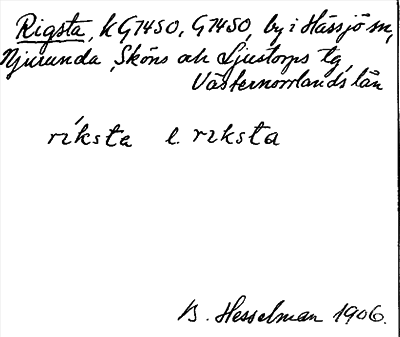 Rigsta, KG7450, G7450, by i Hässjö sn,
Njurunda, Sköns och Ljustorps tg,
Västernorrlands län
ríksta l. riksta
B. Hesselman 1906.